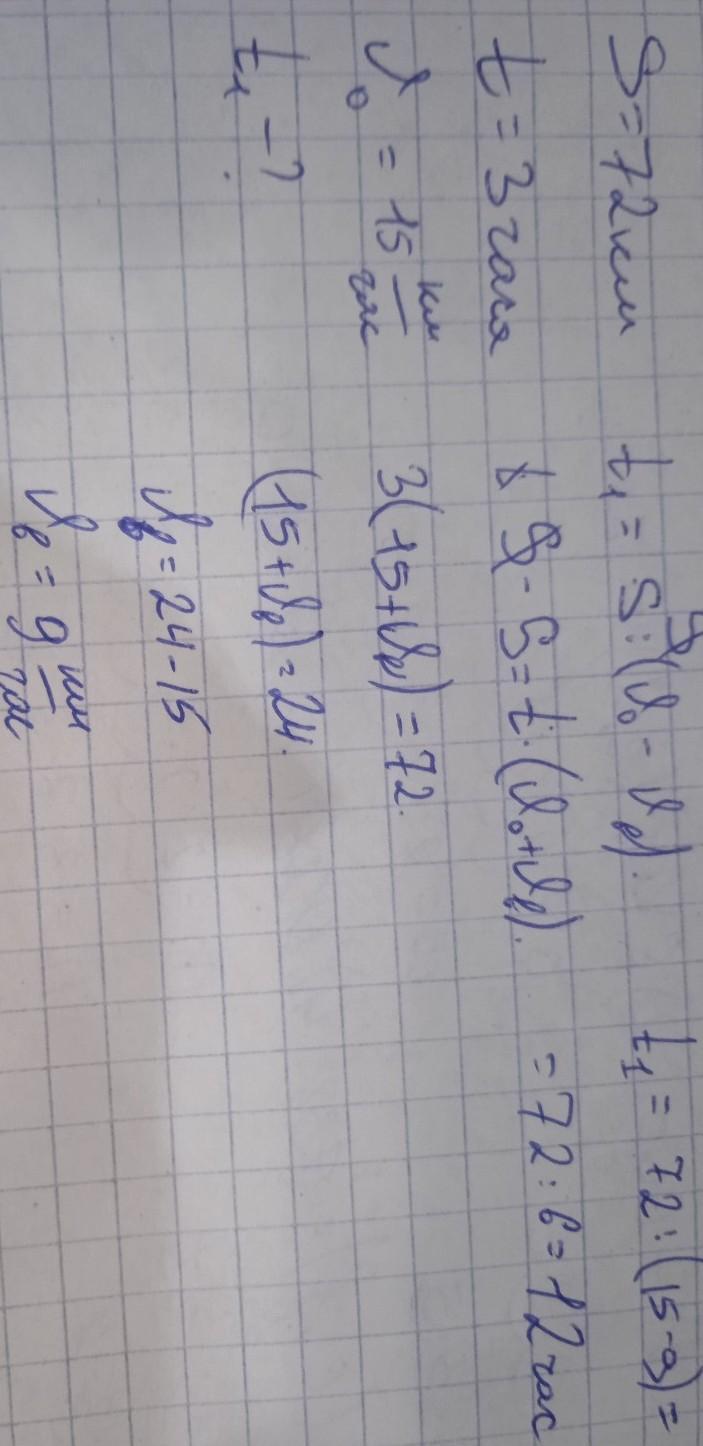 S = 72 км
t = 3 часа
𝒱₀ = 15 км/час
t₁ - ?
t₁ = S : (𝒱₀ - 𝒱в).
S = t · (𝒱₀ + 𝒱в).
3(15 + 𝒱в) = 72.
(15 + 𝒱в) = 24.
𝒱в = 24 - 15
𝒱в = 9 км/час
t₁ = 72 : (15 - 9) =
= 72 : 6 = 12 час